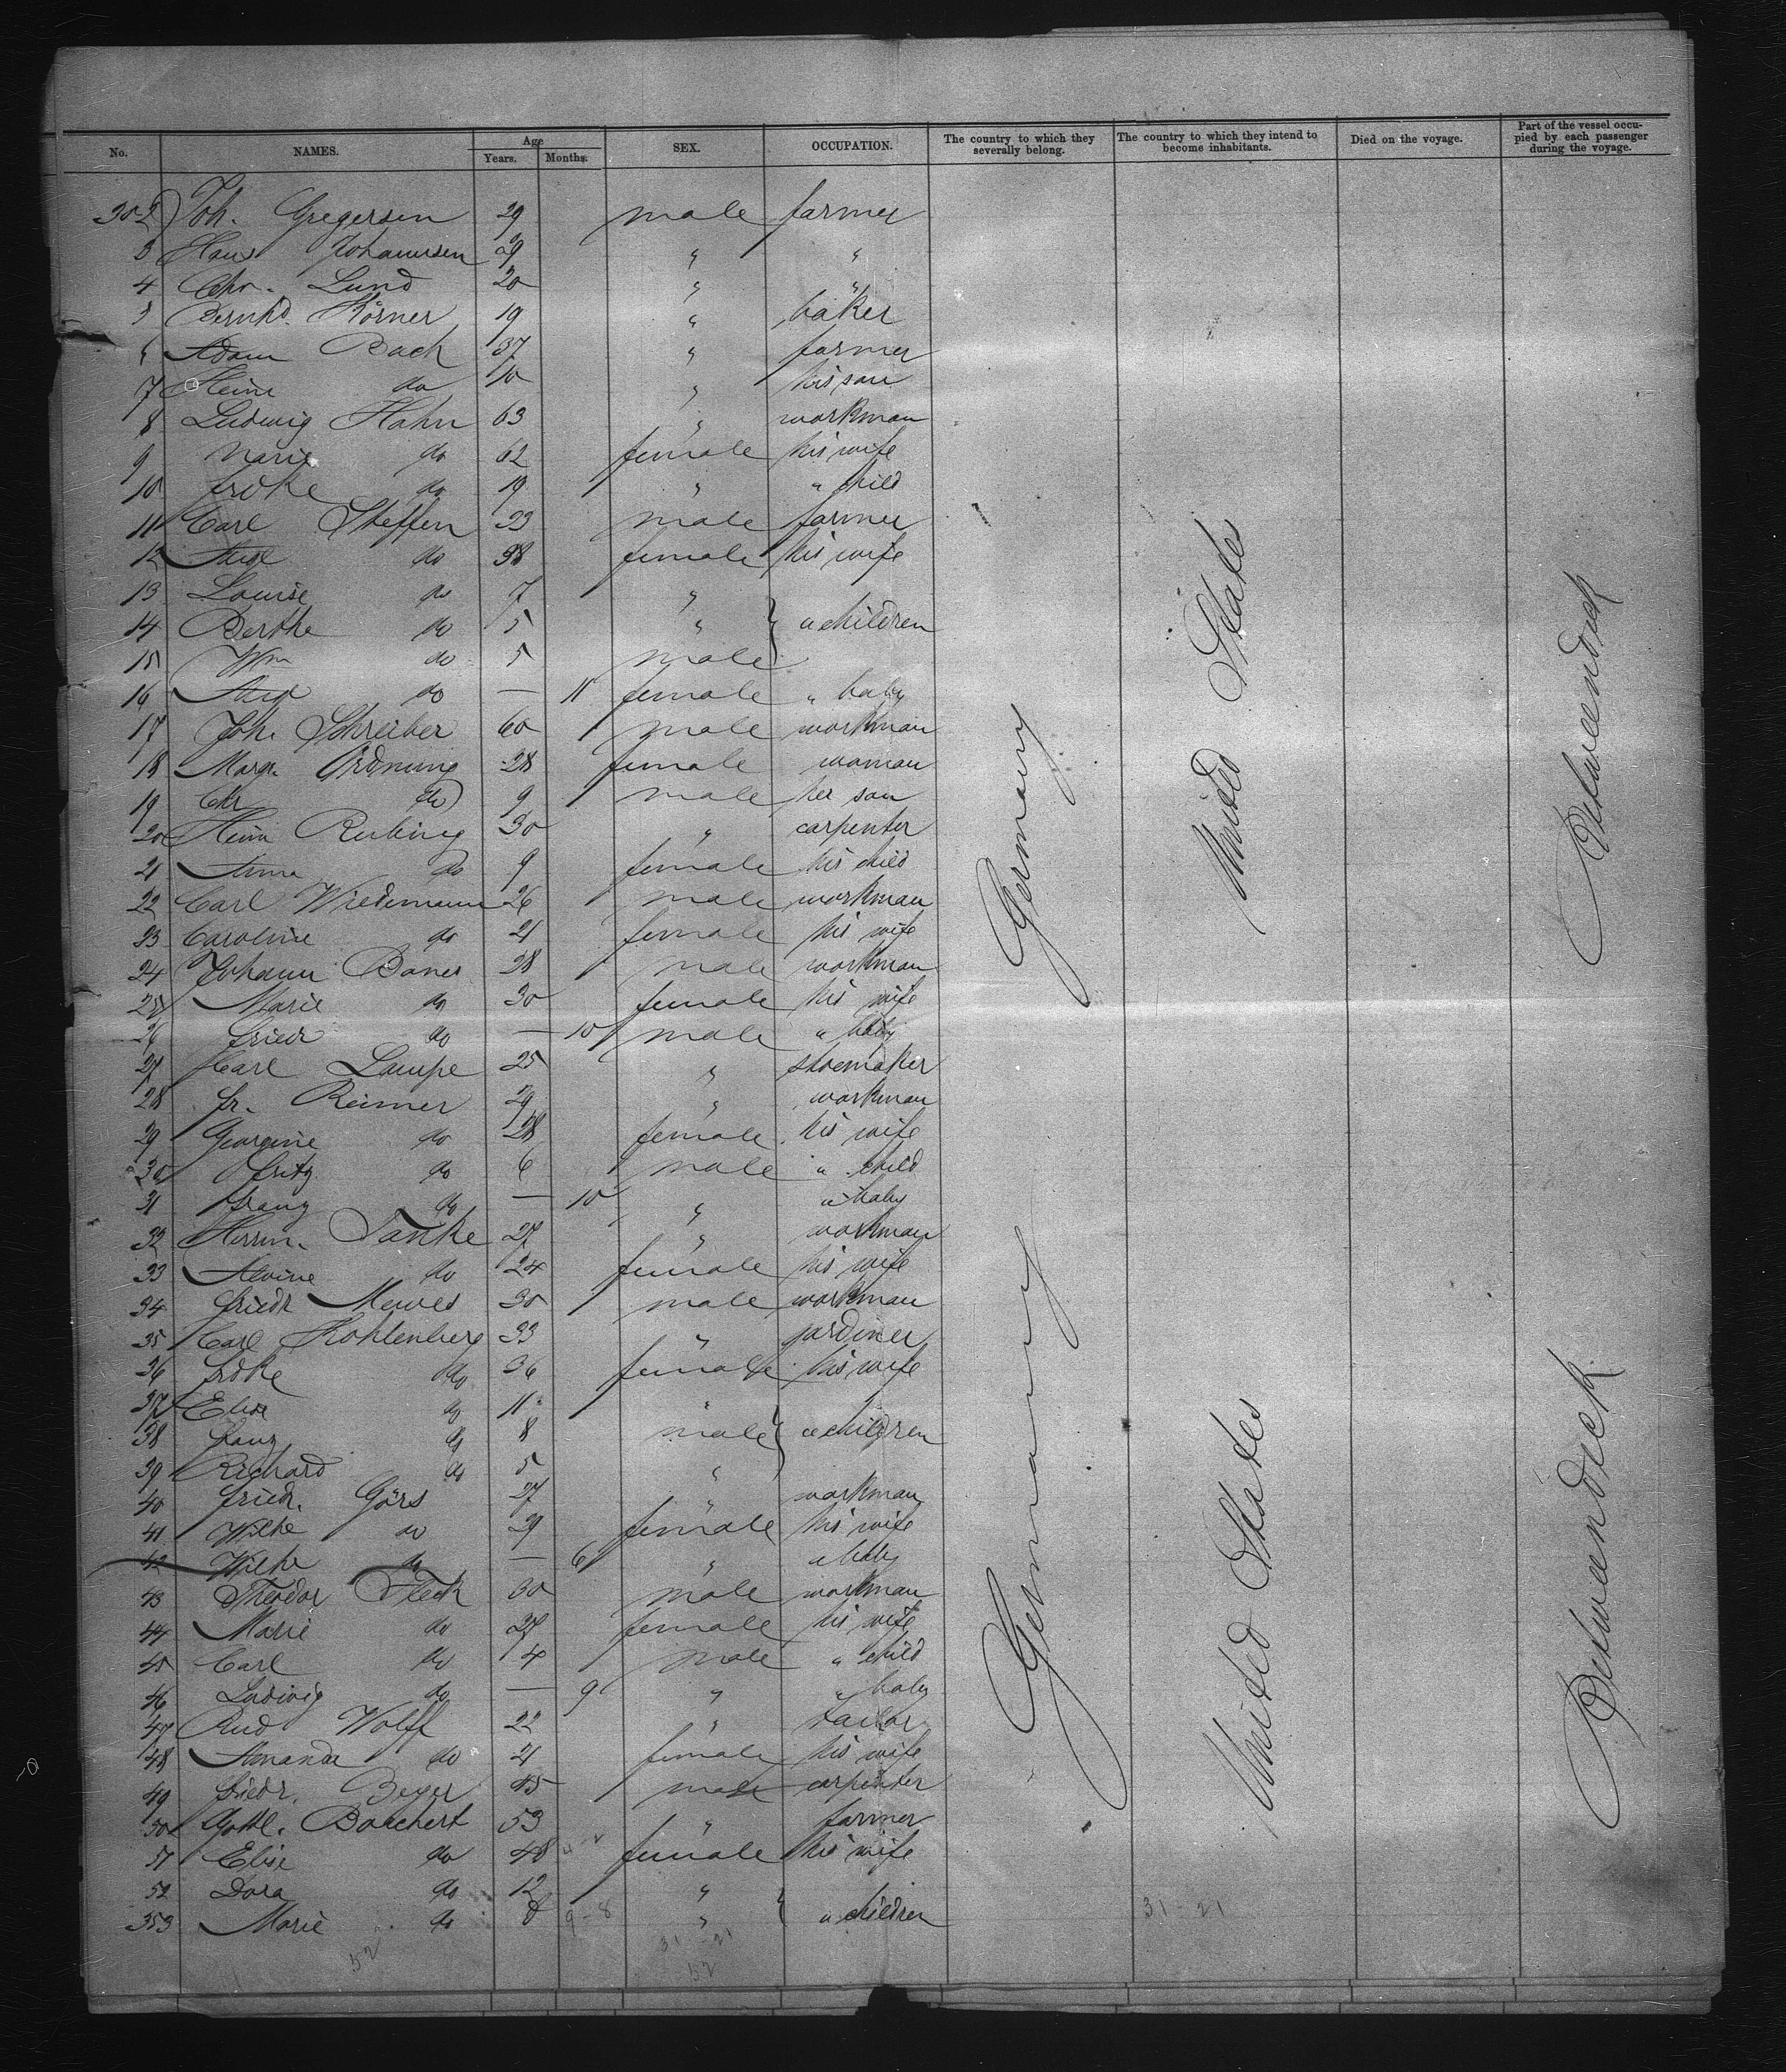 No. NAMES. Age Years. Months. SEX. OCCUPATION. The country to which they severally belong. The country to which they intend to become inhabitants. Died on the voyage. Part of the vessel occupied by each passenger during the voyage.
302 Joh. Gregersen 29 male farmer
3 Hans Johannsen 29 " "
4 Chr. Lund 20 " "
5 Bernhd. Körner 19 " baker
6 Adam Bach 37 " farmer
7 Heinr do 10 " his son
8 Ludwig Hahn 63 " workman
9 Marie do 62 female his wife
10 Frdke do 19 " " child
11 Carl Steffen 33 male farmer
12 do 38 female his wife
13 Louise do 7 "
14 Berthe do 5 " " children
15 Wm do 5 male
16 do — 11 female " baby
17 Joh. Schreiber 60 male workman
18 Marg. Ordnung 28 female woman
19 Chr do 9 male her son
20 Heinr 30 " carpenter
21 Anna do 9 female his child
22 Carl Wiedemann 26 male workman
23 Caroline do 21 female his wife
24 Johann 28 male workman
25 Marie do 30 female his wife
26 Friedr do — 10 male " baby
27 Carl Lampe 25 " shoemaker
28 Fr. Reimer 29 " workman
29 Georgine do 28 female his wife
30 Fritz do 6 male " child
31 Franz do — 10 " " baby
32 Herrm. Tanke 27 " workman
33 Alvine do 24 female his wife
34 Friedr Mewes 30 male workman
35 Carl Kohlenberg 33 " gardiner
36 Frdke do 36 female his wife
37 Elise do 11 "
38 do 8 male " children
39 Richard do 5 "
40 Friedr. Görs 27 " workman
41 Wilhe do 29 female his wife
42 Wilhe do — 6 " " baby
43 Theodor Fleck 30 male workman
44 Marie do 27 female his wife
45 Carl do 4 male " child
46 Ludwig do — 9 " " baby
47 Rud Wolff 22 " tailor
48 Amanda do 21 female his wife
49 Friedr. Beyer 45 male carpenter
50 Gottl. Borchert 53 " farmer
51 Elise do 48 female his wife
52 Dora do 12 "
353 Marie do 8 " " children
Germany
United States
Betweendeck
Germany
United States
Betweendeck
9-8
31-21
31-21
52
52